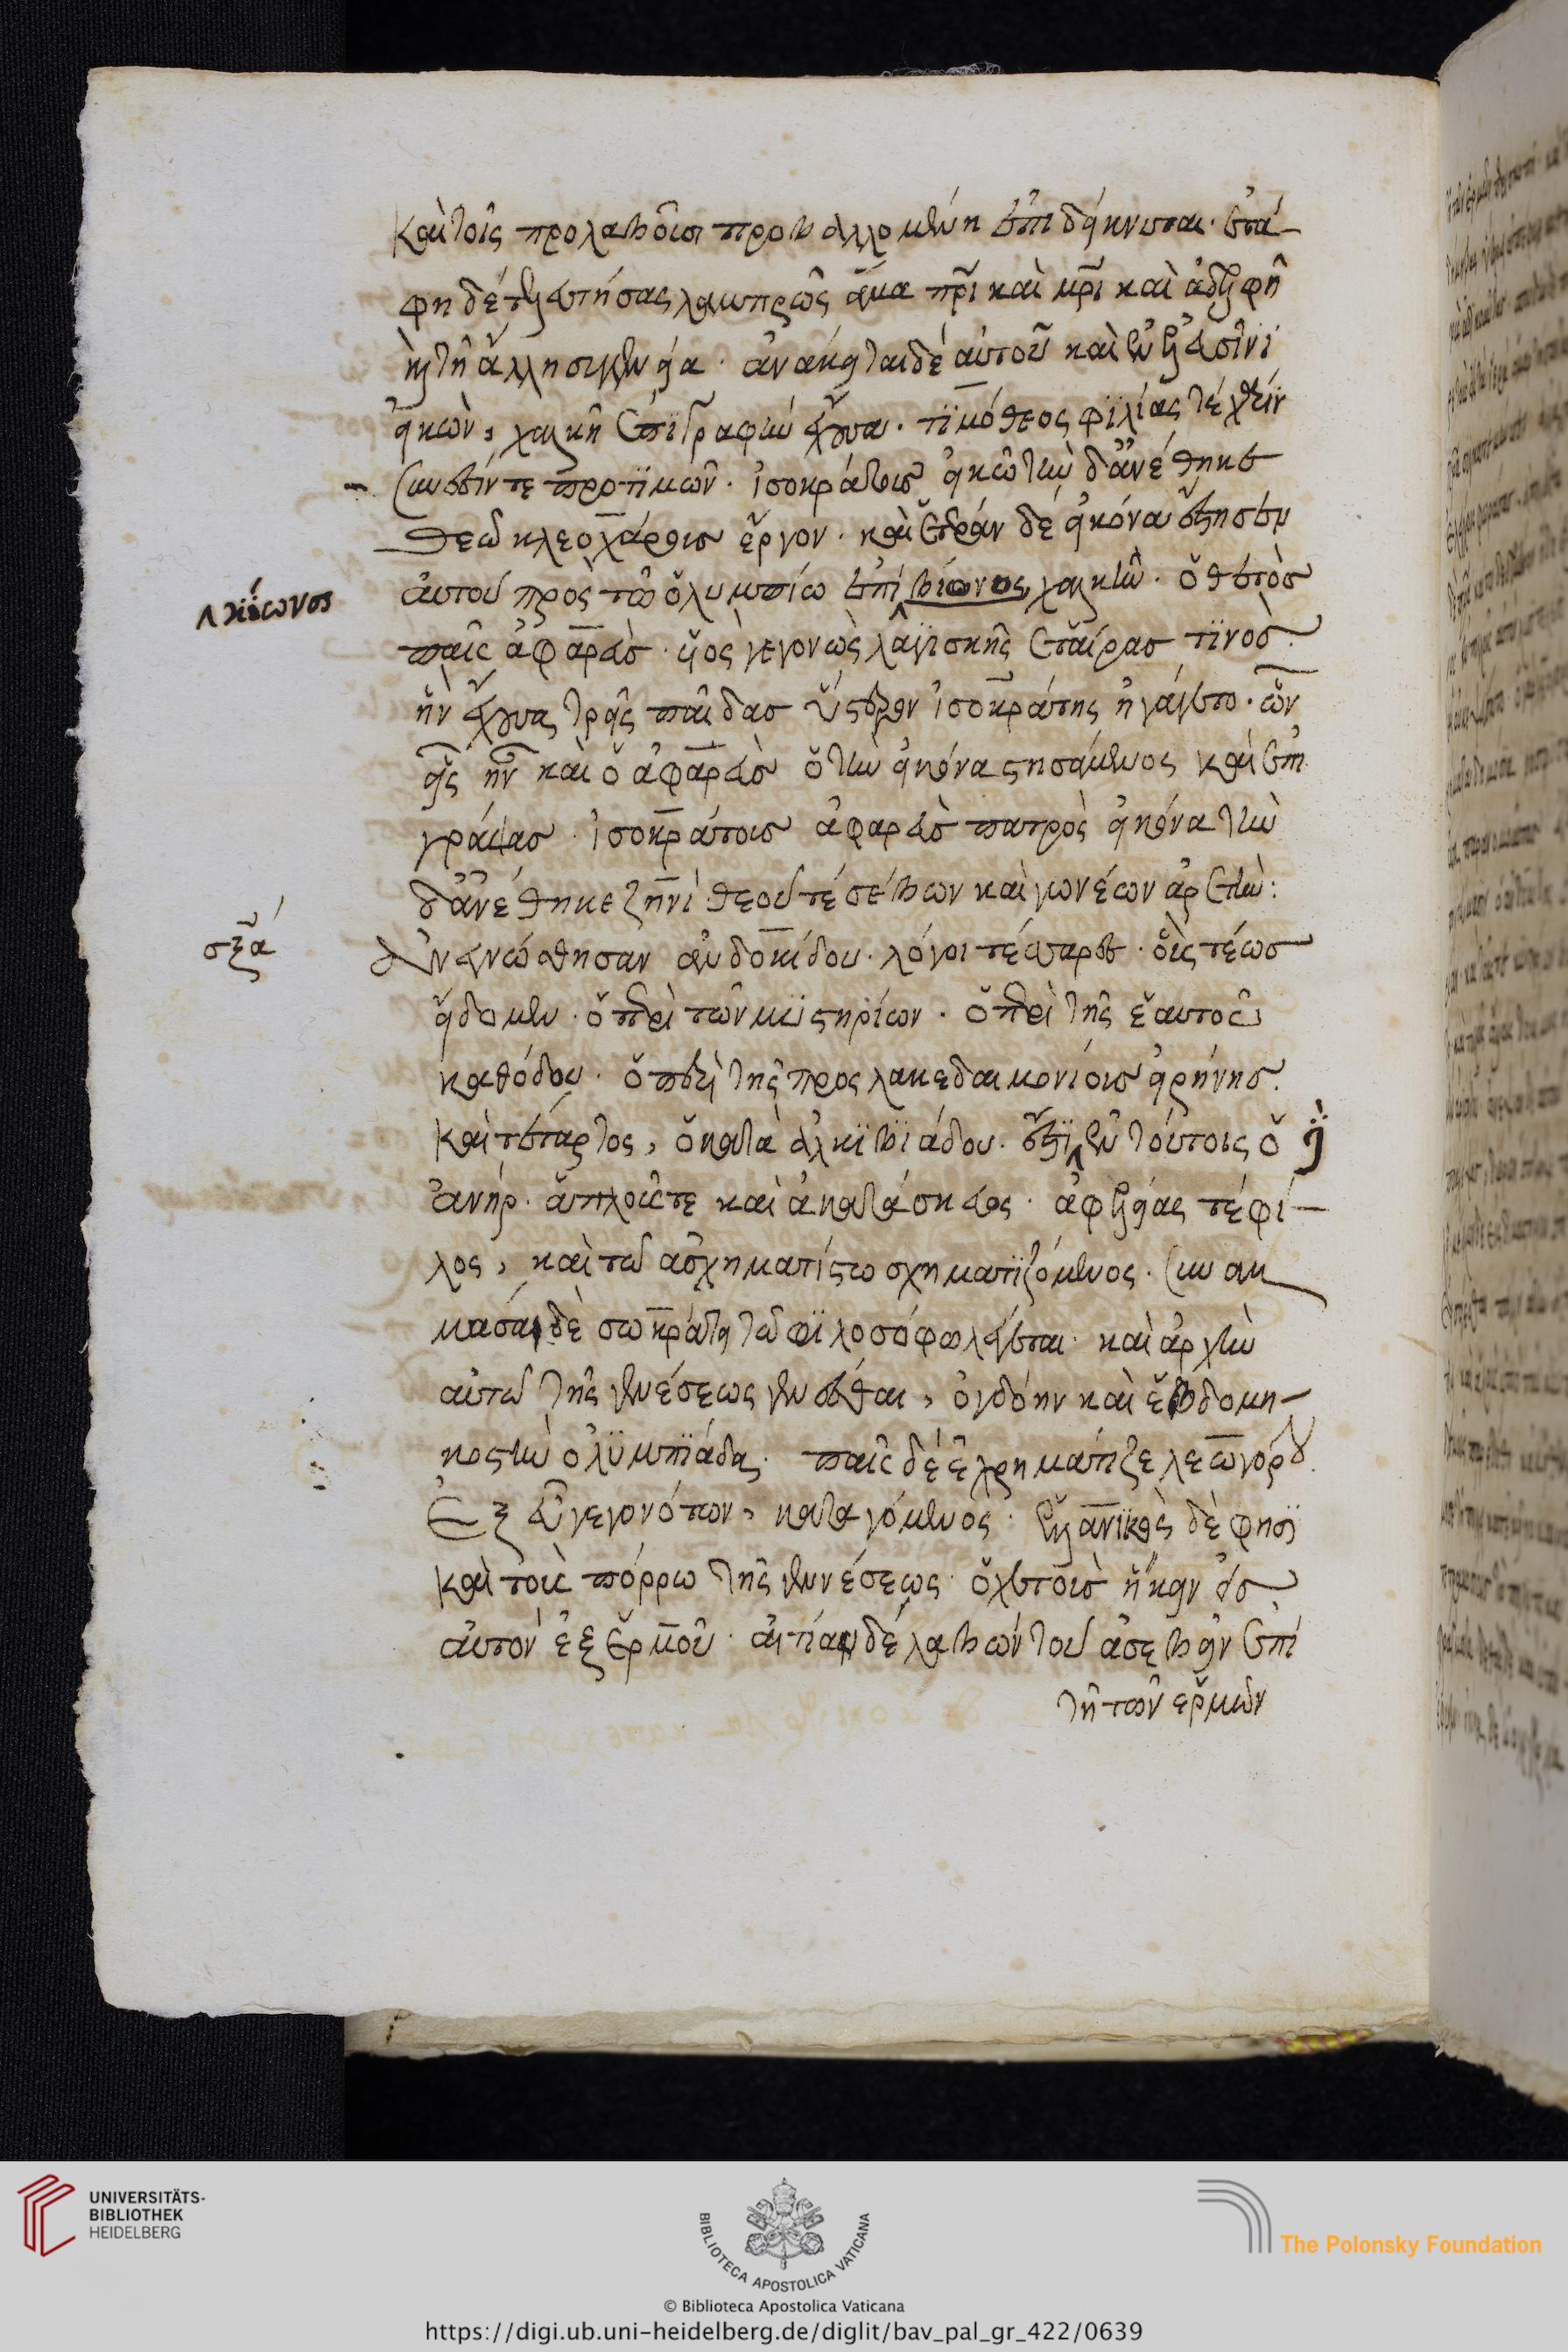 καὶ τοῖς προλαβοῦσι προβαλλομένη ἐπιδείκνυται. ἐτά-
φη δὲ τελευτήσας λαμπρῶς ἅμα πρι καὶ μρι καὶ ἀδελφῆ
καὶ τῆ ἄλλη συγγενεία. ἀνάκειται δὲ αὐτοῦ καὶ ἐν ἐλευσῖνι
εἰκὼν, χαλκῆ ἐπιγραφὴν ἔχουσα. τιμόθεος φιλίας τὲ χάριν
ξύνεσίν τε προτιμῶν. ἰσοκράτους εἰκὼ τὴν δ' ἀνέθηκε
θεῶ κλεοχάρους ἔργον. καὶ ἑτέραν δὲ εἰκόνα ἔστησεν
αὐτοῦ πρὸς τῶ ὀλυμπίω ἐπὶ βίωνος χαλκῆν. ὁ θετὸς
κίωνος
παῖς ἀφαρεὺς. υἱὸς γεγονὼς λαγίσκης ἑταίρας τινος.
ἣν ἔχουσαν τρεῖς παῖδας ὕστερον ἰσοκράτης ἠγάγετο. ὧν
εἷς ἦν καὶ ὁ ἀφαρεὺς ὁ τὴν εἰκόνα στησάμενος καὶ ἐπι
γράψας. ἰσοκράτους ἀφαρεὺς πατρὸς εἰκόνα τὴν
δ' ἀνέθηκε ζηνὶ. θεούς τέ σέβων καὶ γονέων ἀρετήν:
σξα
Ἀνεγνώσθησαν ἀνδοκίδου. λόγοι τέσσαρες. οἷς τέως
ἥδομεν. ὁ περὶ τῶν μυστηρίων. ὁ περὶ τῆς ἑαυτοῦ
καθόδου. ὁ περὶ τῆς πρὸς λακεδαιμονίους εἰρήνης.
καὶ τέταρτος, ὁ κατὰ ἀλκιβιάδου. ἔστι ἐν τούτοις ὁ
ἀνήρ. ἁπλοῦς τε καὶ ἀκατάσκευος. ἀφελείας τέ φί-
λος, καὶ τῶ ἀσχηματίστω σχηματιζόμενος. συνακ
μάσαι δὲ σωκράτει τῶ φιλοσόφω λέγεται. καὶ ἀρχὴν
αὐτῶ τῆς γενέσεως γενέσθαι, ὀγδόην καὶ ἑβδομη-
κοστὴν ὀλυμπιάδα. παῖς δὲ ἐχρημάτιζε λεωγόρου
ἐξ εὖ γεγονότων, καταγόμενος. ἑλλάνικος δὲ φησὶ
καὶ τοῖς πόρρω τῆς γεννέσεως ὀχετοῖς ἥκειν εἰς
αὐτὸν ἐξ ἑρμοῦ. αἰτίαν δὲ λαβὼν τοῦ ἀσεβεῖν ἐπὶ
τῆ τῶν ἑρμῶν
UNIVERSITÄTS-
BIBLIOTHEK
HEIDELBERG
BIBLIOTECA APOSTOLICA VATICANA
The Polonsky Foundation
© Biblioteca Apostolica Vaticana
https://digi.ub.uni-heidelberg.de/diglit/bav_pal_gr_422/0639